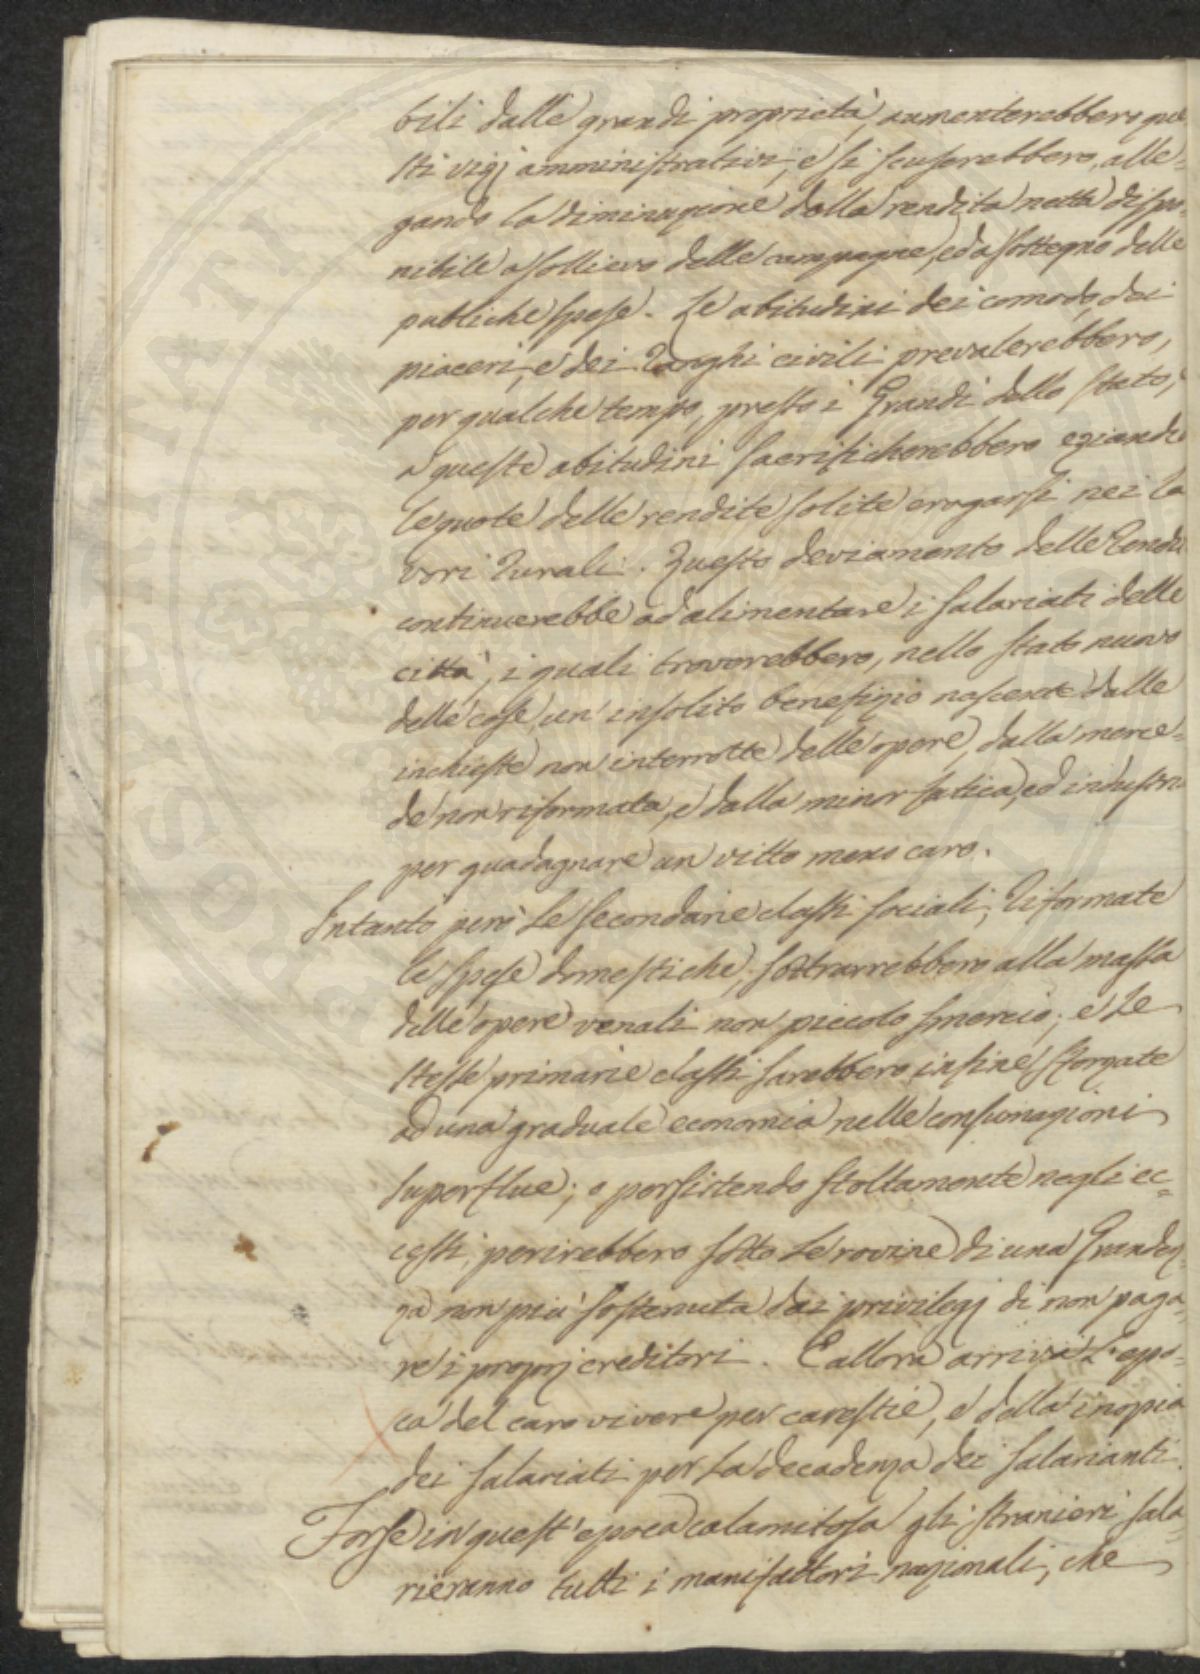 bili dalle grandi proprietà, aumenterebbero que
sti vizj amministrativi, e si scuserebbero, alle-
gando la diminuzione della rendita netta dispo-
nibile a sollievo delle campagne, ed a sostegno delle
publiche spese. Le abitudini dei comodi, dei
piaceri, e dei ranghi civili prevalerebbero,
per qualche tempo, presso i Grandi dello stato;
a queste abitudini sacrificherebbero eziandio
le quote delle rendite solite erogarsi nei la
vori rurali. Questo deviamento delle rendite
continuerebbe ad alimentare i salariati delle
città, i quali troverebbero, nello stato nuovo
delle cose, un' insolito benefizio nascente dalle
inchieste non interrotte delle opere, dalla merce-
de non riformata, e dalla minor fatica, ed industria
per guadagnare un vitto meno caro.
Intanto però le secondarie classi sociali, riformate
le spese domestiche, sottrarrebbero alla massa
delle opere venali non piccolo smercio; e le
stesse primarie classi sarebbero infine sforzate
ad una graduale economia nelle consumazioni
superflue; o persistendo stoltamente negli ec-
cessi, perirebbero sotto le rovine di una Grandez-
za non più sostenuta dai privilegj di non paga-
re i proprj creditori. E allora arriva l'epo-
ca del caro vivere per carestie, e della inopia
dei salariati per la decadenza dei salarianti.
Forse in quest' epoca calamitosa gli stranieri sala-
rieranno tutti i manifattori nazionali, che
POSITI PROSPERITATI PUBLICAE